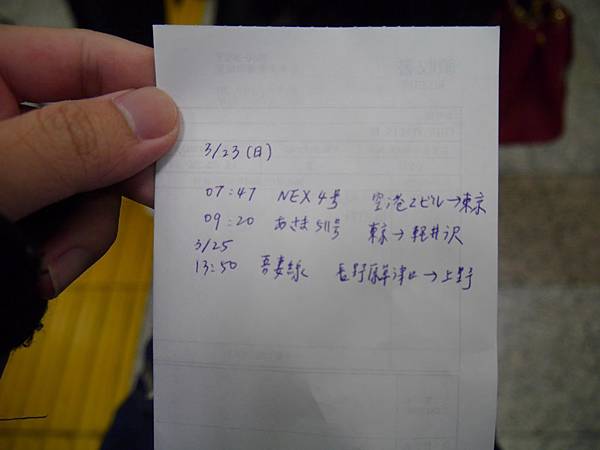 3/23(日)
07:47 NEX 4号 空港2ビル→東京
09:20 あさま511号 東京→軽井沢
3/25
13:50 吾妻線 長野原草津口→上野